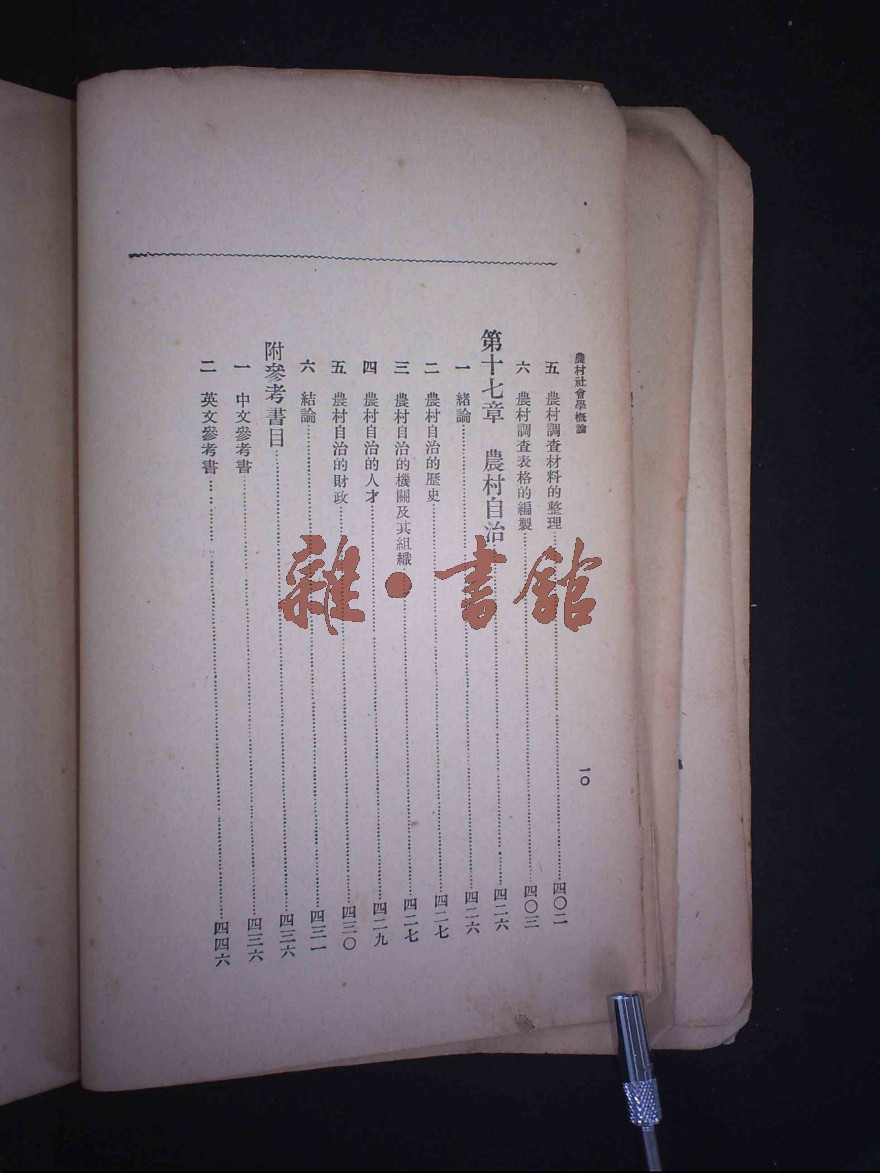 農村社會學概論
一〇
五 農村調查材料的整理…………四〇二
六 農村調查表格的編製…………四〇三
第十七章 農村自治…………四二六
一 緒論…………四二六
二 農村自治的歷史…………四二七
三 農村自治的機關及其組織…………四二七
四 農村自治的人才…………四二九
五 農村自治的財政…………四三〇
六 結論…………四三一
附參考書目…………四三六
一 中文參考書…………四三六
二 英文參考書…………四四六
雜·書館